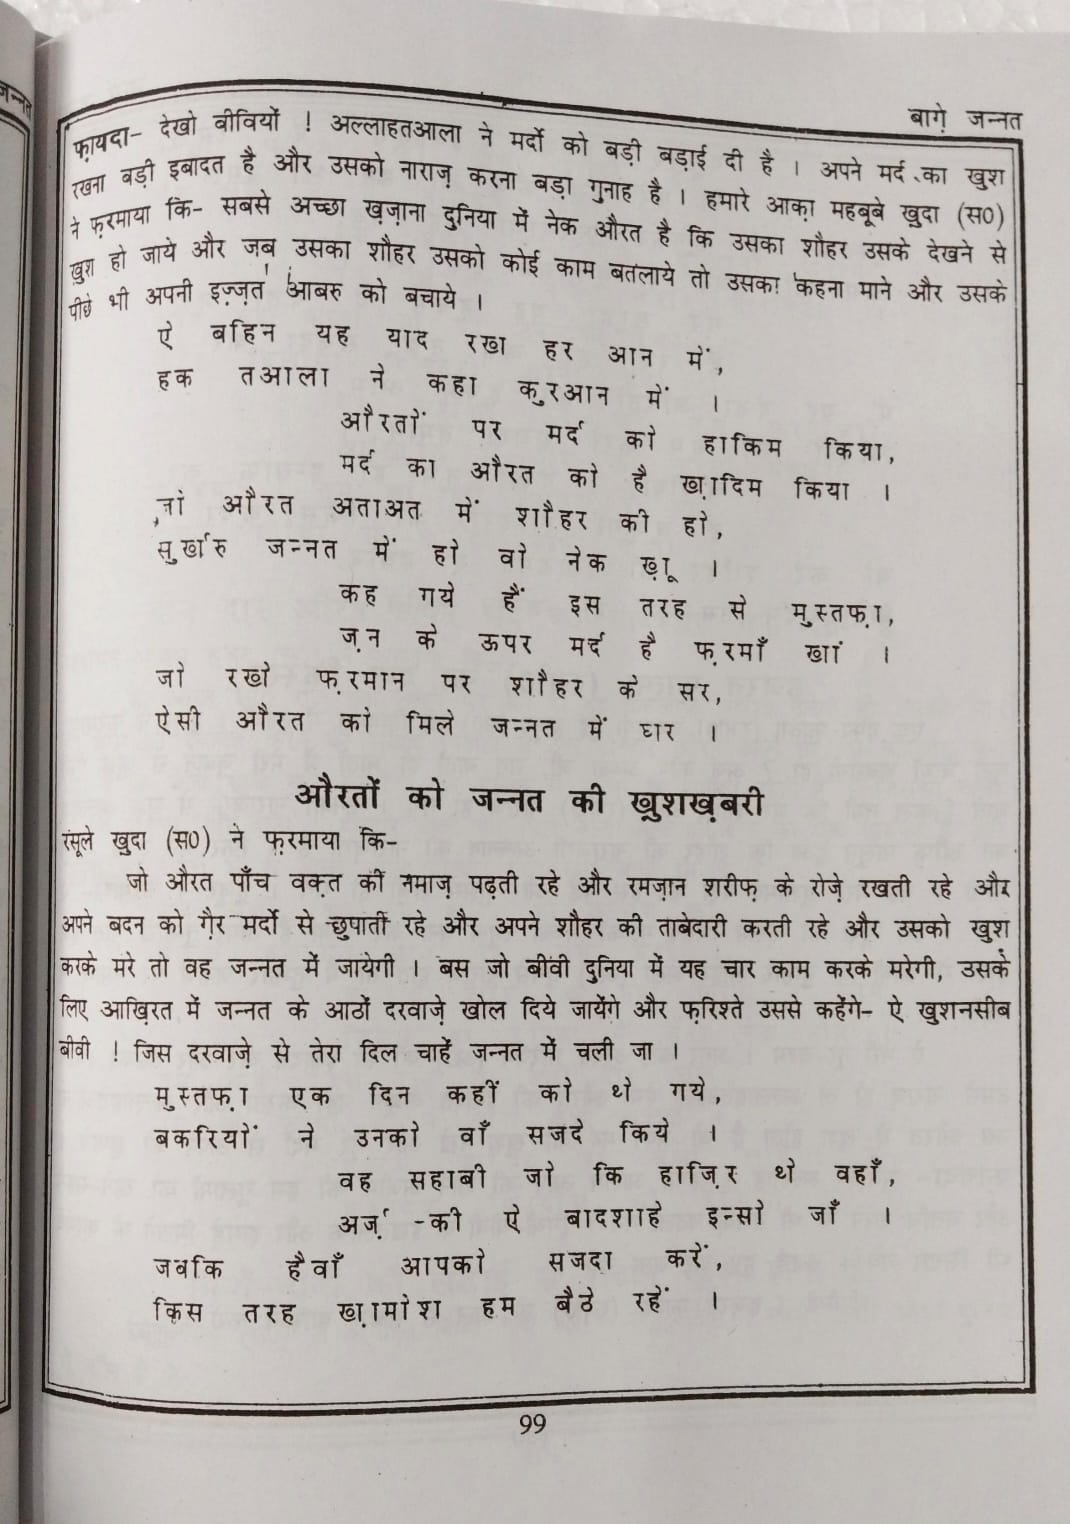 जन्नत
बाग़े जन्नत
फ़ायदा- देखो बीवियों ! अल्लाहतआला ने मर्दो को बड़ी बड़ाई दी है । अपने मर्द का खुश
रखना बड़ी इबादत है और उसको नाराज़ करना बड़ा गुनाह है । हमारे आक़ा महबूबे ख़ुदा (स0)
ने फ़रमाया कि- सबसे अच्छा ख़ज़ाना दुनिया में नेक औरत है कि उसका शौहर उसके देखने से
खुश हो जाये और जब उसका शौहर उसको कोई काम बतलाये तो उसका कहना माने और उसके
पीछे भी अपनी इज़्ज़त आबरु को बचाये ।
ऐ बहिन यह याद रखा हर आन में,
हक तआला ने कहा क़ुरआन में ।
औरतों पर मर्द को हाकिम किया,
मर्द का औरत को है ख़ादिम किया ।
औरत अताअत में शौहर की हो,
सुर्खारु जन्नत में हो वो नेक ख़ू ।
कह गये हैं इस तरह से मुस्तफ़ा,
ज़न के ऊपर मर्द है फ़रमाँ खां ।
जो रखे फ़रमान पर शौहर के सर,
ऐसी औरत को मिले जन्नत में घर ।
औरतों को जन्नत की ख़ुशख़बरी
रसूले ख़ुदा (स0) ने फ़रमाया कि-
जो औरत पाँच वक़्त की नमाज़ पढ़ती रहे और रमज़ान शरीफ़ के रोज़े रखती रहे और
अपने बदन को ग़ैर मर्दो से छुपाती रहे और अपने शौहर की ताबेदारी करती रहे और उसको खुश
करके मरे तो वह जन्नत में जायेगी । बस जो बीवी दुनिया में यह चार काम करके मरेगी, उसके
लिए आख़िरत में जन्नत के आठों दरवाज़े खोल दिये जायेंगे और फ़रिश्ते उससे कहेंगे- ऐ खुशनसीब
बीवी ! जिस दरवाज़े से तेरा दिल चाहें जन्नत में चली जा ।
मुस्तफ़ा एक दिन कहीं को थे गये,
बकरियों ने उनको वाँ सजदे किये ।
वह सहाबी जो कि हाज़िर थे वहाँ,
अर्ज़ -की ऐ बादशाहे इन्सो जाँ ।
जबकि हैवाँ आपको सजदा करें,
किस तरह ख़ामोश हम बैठे रहें ।
99